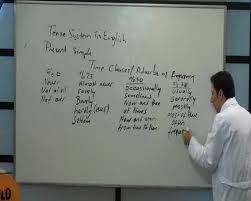 Tense System In English
Present Simple
Time Clauses/Adverbs of Frequency
%0 %25 %50
Never Almost never Occasionally Usually
Not at all Rarely Sometimes Generally
Not ever Barely Now and then mostly
hardly (ever) at times most of then
Seldom Now and again often
from time to time